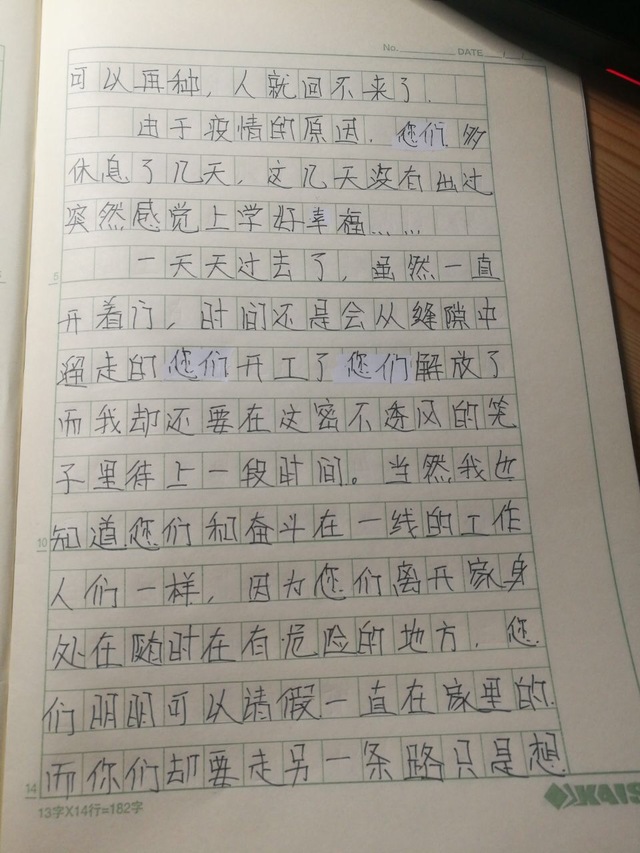 No. DATE / /
可以再种，人就回不来了.
由于疫情的原因.您们.够
休息了几天，这几天没有出过
突然感觉上学好幸福……
5
一天天过去了，虽然一直
开着门，时间还是会从缝隙中
遛走的您们开工了您们解放了
而我却还要在这密不透风的笼
子里待上一段时间。当然我也
10
知道您们和奋斗在一线的工作
人们一样，因为您们离开家身
处在随时在有危险的地方.您.
们明明可以请假一直在家里的.
14
而你们却要走另一条路只是想
13字X14行=182字
KAIS